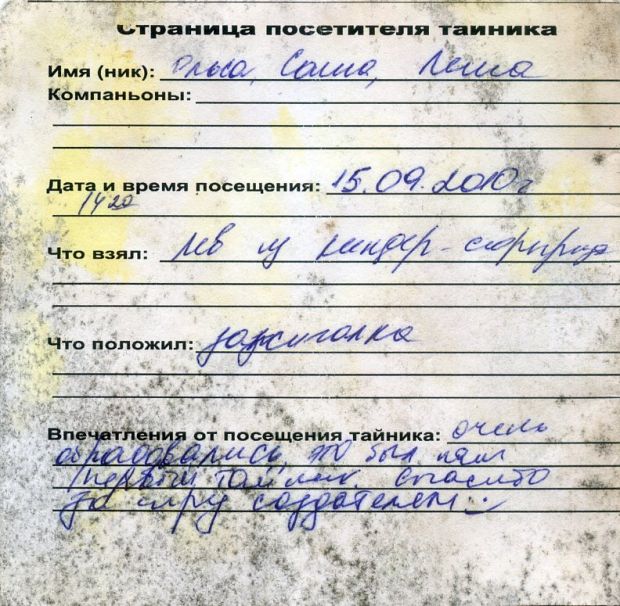 Страница посетителя тайника
Имя (ник): Ольга, Саша, Леша
Компаньоны:
Дата и время посещения: 15.09.2010г
14 20
Что взял: лев из киндер-сюрприза
Что положил: зажигалка
Впечатления от посещения тайника: очень
обрадовались, это был наш
первый тайник. Спасибо
за игру создателям :)